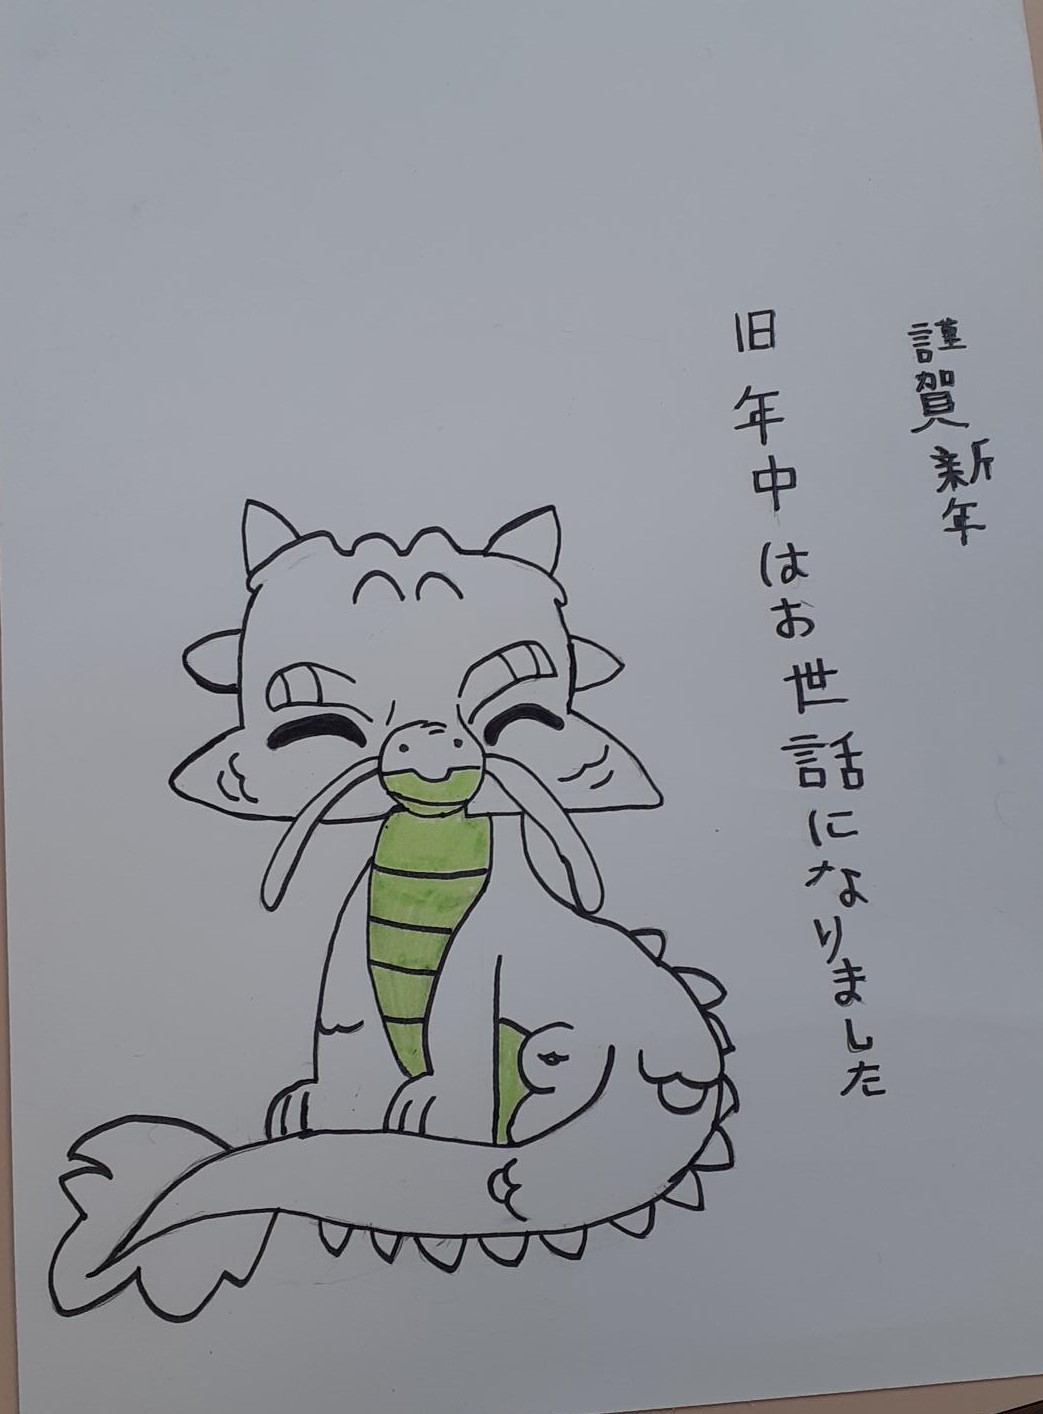 謹賀新年
旧年中はお世話になりました